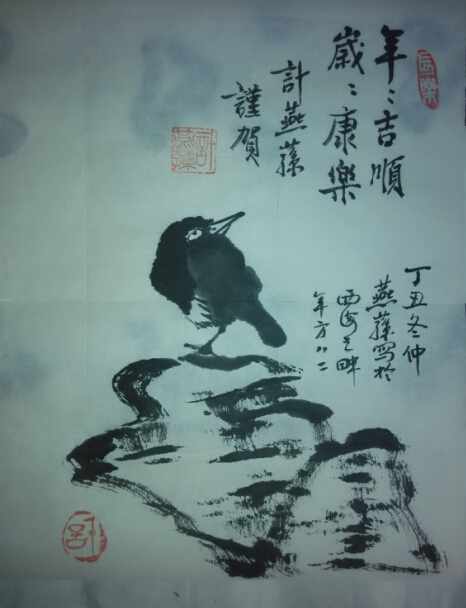 年〻吉順
歲〻康樂
計燕蓀
謹賀
計燕蓀
丁丑冬仲
燕蓀寫於
西海之畔
年方八二